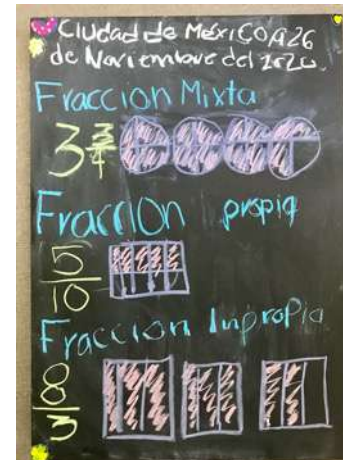 Ciudad de México A 26
de Noviembre del 2020.
Fraccion Mixta
3 3/4
Fraccion propia
5/10
Fraccion Inpropia
8/3